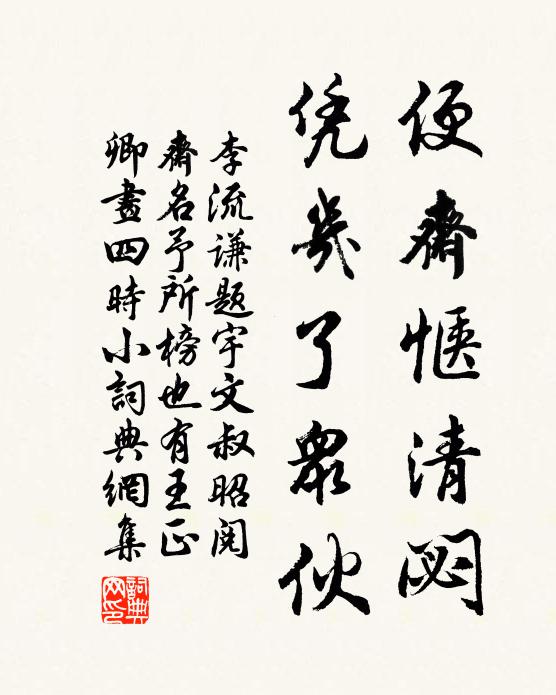 便齋愜清閟
凭幾了眾伙
李流謙題宇文叔昭閱
齋名予所榜也有王正
卿畫四時小詞典網集
詞典网印